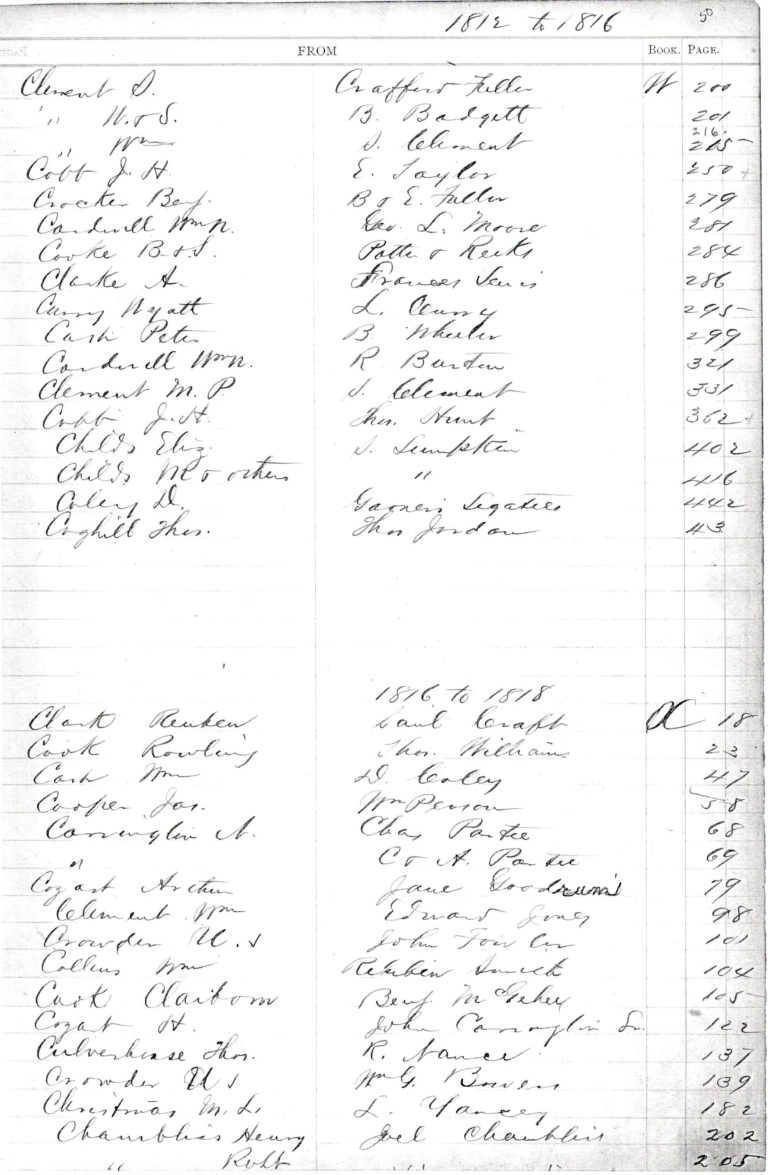 1812 to 1816 50
FROM BOOK. PAGE.
Clement S. Crafford Fuller W 200
" W. & S. B. Badgett 201
" Wm S. Clement 216. 215
Cobb J. H. E. Taylor 250 +
Crocker Benj. B & E. Fuller 279
Cardwell Wm R. Geo. L. Moore 281
Cooke B. & S. Potter & Reeks 284
Clarke A. Frances Lewis 286
Curry Wyatt L. Curry 295
Cash Peter B. Wheeler 299
Cardwell Wm R. R Burton 321
Clement M. P. S. Clement 331
Cobb J. H. Thos. Hunt 362 +
Childs Eliz. S. Lumpkin 402
Childs M & others " 416
Coley D. Legatees 442
Coghill Thos. Thos Jordan 43
1816 to 1818
Clark Reuben Saul Craft X 18
Cook Rowling Thos. Williams 23
Cash Wm D. Coley 47
Cooper Jas. Wm Person 58
Carrington N. Chas Partee 68
" C & A. Partee 69
Cozart Archer Jane Goodrum's 79
Clement Wm Edward Jones 98
Crowder U. S John Fowler 101
Collins Wm Reubin Smith 104
Cook Claiborn Benj. McGehee 105
Cozart H. John Carrington Sr. 122
Culverhouse Thos. R. Nance 137
Crowder U S Wm G. Bowers 139
Christmas M. L. L. Yancey 182
Chambliss Henry Joel Chambliss 202
" Robt " " 205